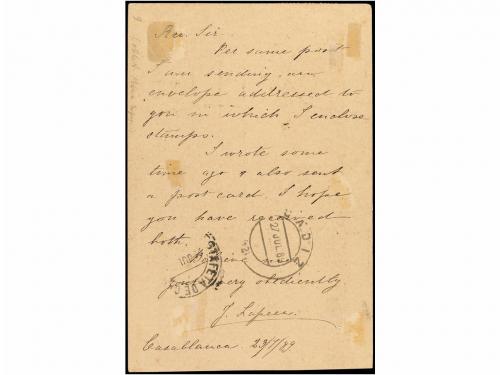 Rev. Sir
Per same post
I am sending an
envelope addressed to
you in which I enclose
stamps.
I wrote some
time ago & also sent
a post card. I hope
you have received
both.
very obediently
J.
Casablanca 23/7/89
CADIZ
27 JUL 89
ESTAFETA DE C
JUL